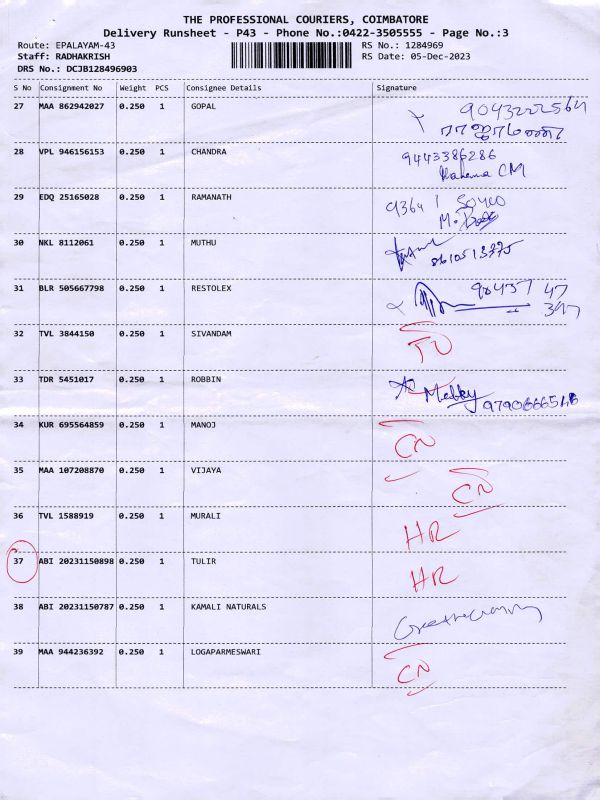 THE PROFESSIONAL COURIERS, COIMBATORE
Delivery Runsheet - P43 - Phone No.:0422-3505555 - Page No.:3
Route: EPALAYAM-43 RS No.: 1284969
Staff: RADHAKRISH RS Date: 05-Dec-2023
DRS No.: DCJB128496903
S No Consignment No Weight PCS Consignee Details Signature
27 MAA 862942027 0.250 1 GOPAL 9043222564
28 VPL 946156153 0.250 1 CHANDRA 9443386286
29 EDQ 25165028 0.250 1 RAMANATH
30 NKL 8112061 0.250 1 MUTHU 8610513775
31 BLR 505667798 0.250 1 RESTOLEX
32 TVL 3844150 0.250 1 SIVANDAM
33 TDR 5451017 0.250 1 ROBBIN
34 KUR 695564859 0.250 1 MANOJ CN
35 MAA 107208870 0.250 1 VIJAYA CN
36 TVL 1588919 0.250 1 MURALI HR
37 ABI 20231150898 0.250 1 TULIR HR
38 ABI 20231150787 0.250 1 KAMALI NATURALS
39 MAA 944236392 0.250 1 LOGAPARMESWARI CN